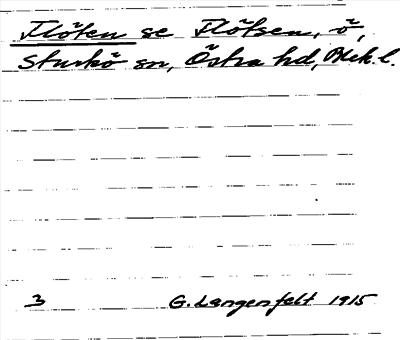 Flöten se Flötsen, ö,
Sturkö sn, Östra hd, Blek. l.
3 G. Langenfelt 1915